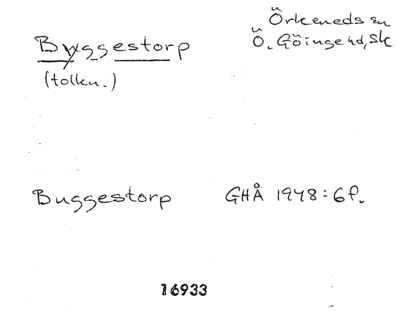 Byggestorp
Örkeneds sn
Ö. Göinge hd, Sk
(tolkn.)
Buggestorp GHÅ 1948:6f.
16933